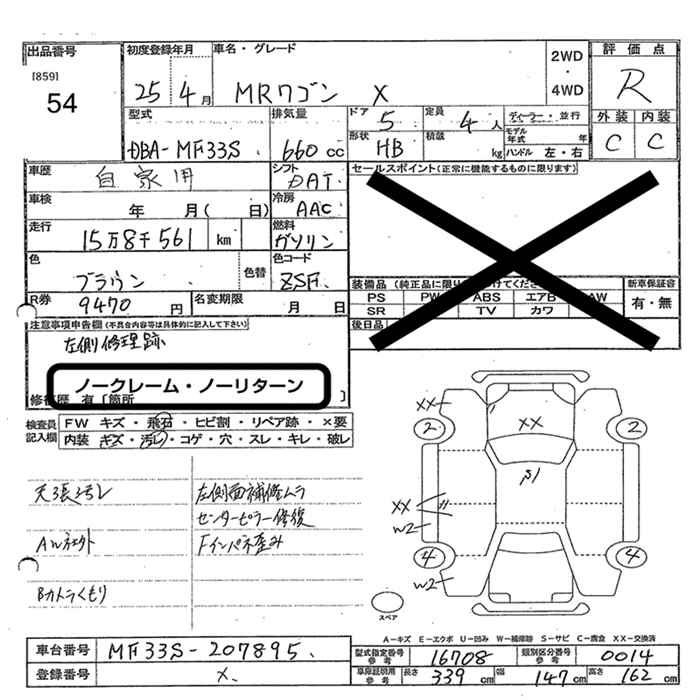 出品番号
[859]
54
初度登録年月
25 4月
車名・グレード
MRワゴン X
2WD
・
4WD
評価点
R
外装 内装
C C
型式
DBA-MF33S
排気量
660cc
ドア 5
定員 4人
形状 HB
積載 kg
ディーラー・並行
モデル年式 年
ハンドル 左・右
車歴 自家用
シフト DAT
セールスポイント(正常に機能するものに限ります)
車検 年 月( 日)
冷房 AAC
走行 15万8千561 km
燃料 ガソリン
色 ブラウン
色替
色コード ZSF
R券 9470円
名変期限 月 日
装備品
PS PW ABS エアB AW
SR TV カワ
後日品
新車保証書
有・無
注意事項申告欄(不具合内容等は具体的に記入して下さい)
左側修理跡
ノークレーム・ノーリターン
修復歴 有〔箇所 〕
検査員記入欄
FW キズ・飛石・ヒビ割・リペア跡・×要
内装 キズ・汚レ・コゲ・穴・スレ・キレ・破レ
天張汚レ
左側面補修ムラ
センターピラー修復
AW社外
Fインパネ歪み
Bカメラくもり
XX
2
XX
2
XX
W2
4
4
W2
スペア
A-キズ E-エクボ U-凹み W-補修跡 S-サビ C-腐食 XX-交換済
車台番号 MF33S-207895
登録番号 X
型式指定番号 参考 16708
類別区分番号 参考 0014
車庫証明用 参考 長さ 339cm 幅 147cm 高さ 162cm